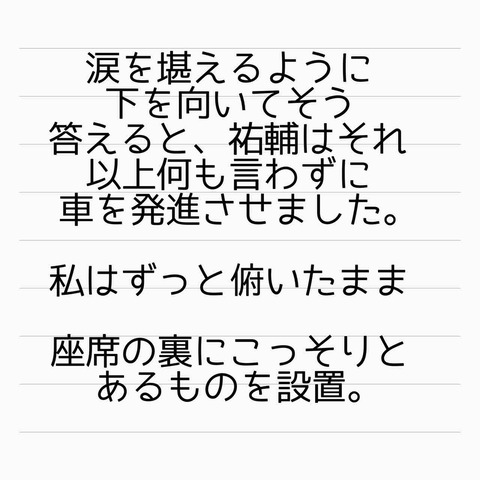 涙を堪えるように
下を向いてそう
答えると、祐輔はそれ
以上何も言わずに
車を発進させました。
私はずっと俯いたまま
座席の裏にこっそりと
あるものを設置。